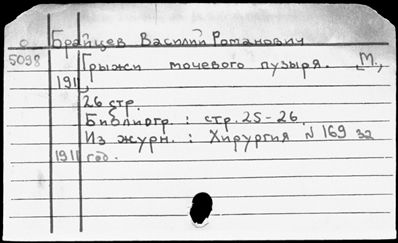 о Брайцев Василий Романович
5098 Грыжи мочевого пузыря. [М.,
1911]
26 стр.
Библиогр. : стр. 25-26.
Из журн. : Хирургия N 169 32
1911 год.